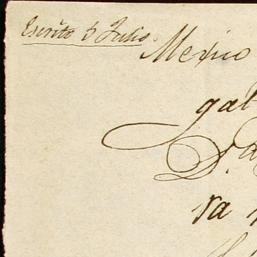 Escrito 5 Julio.
Mexico
gal
D.
va